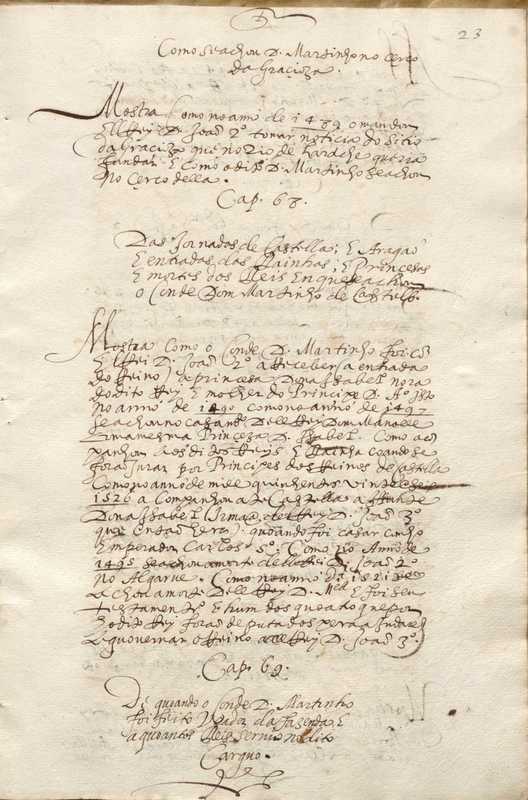 23
Como se achou D. Martinho no cerco
da Gracioza.
Mostra Como no anno de 1489 o mandou
El Rey D. Joaõ 2º tomar noticia do Sitio
da Gracioza que no Rio de Larache queria
fundar E Como o dito D. Martinho se achou
No Cerco della.
Cap. 68.
Das Jornadas de Castella; E Aragaõ
E entradas das Rainhas; E Princesas
E mortes dos Reis En que se achou
o Conde Dom Martinho de Castelbr.
Mostra Como o Conde D. Martinho foi cõ
El Rei D. Joaõ 2º a Receber (a entrada
do Reino) a princesa Dona Issabel nora
do dito Rey E molher do Principe D. Aº
No anno de 1490 como no anno de 1497
se achou no casamto Delle Rey Dom Manoel E
a mesma Princeza D. Isabel. Como aco
panhou aos ditos Reys E Rainha coando se
foraõ Jurar por Principes dos Reinos de Castella
Como no anno de mil e quinhentos vinte seis
1526 a Companhou a Castella a Iffante
Dona Issabel (Irmaã del Rey D. Joaõ 3º
que entaõ Era) quoando foi casar con ho
Emperador Carlos 5º: Como no Anno de
1495 se achou a morte del Rei D. Joaõ 2º
No Algarue. Como no anno de 1521 se
achou a morte Dell Rey D. Mel E foi seu
testamentrº E hum dos que a do que por
o dito Rey foraõ deputados pera a Judarem
a guovernar o Reino a el Rey D. Joaõ 3º
Cap. 69.
De quoando o Conde D. Martinho
foi feito Veador da fazenda E
a quoantos Reis Servio no dito
Carguo.